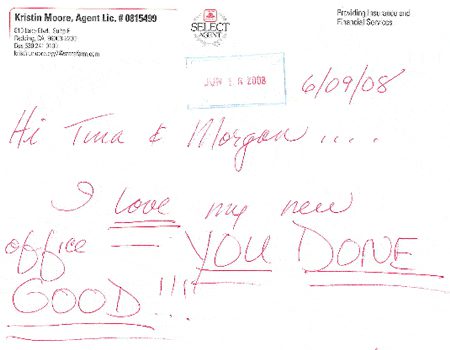 Kristin Moore, Agent Lic. # 0815499
Providing Insurance and
Financial Services
Redding, CA
SELECT
AGENT
JUN 2008
6/09/08
Hi Tina & Morgan ....
I love my new
office — YOU DONE
GOOD !!!!